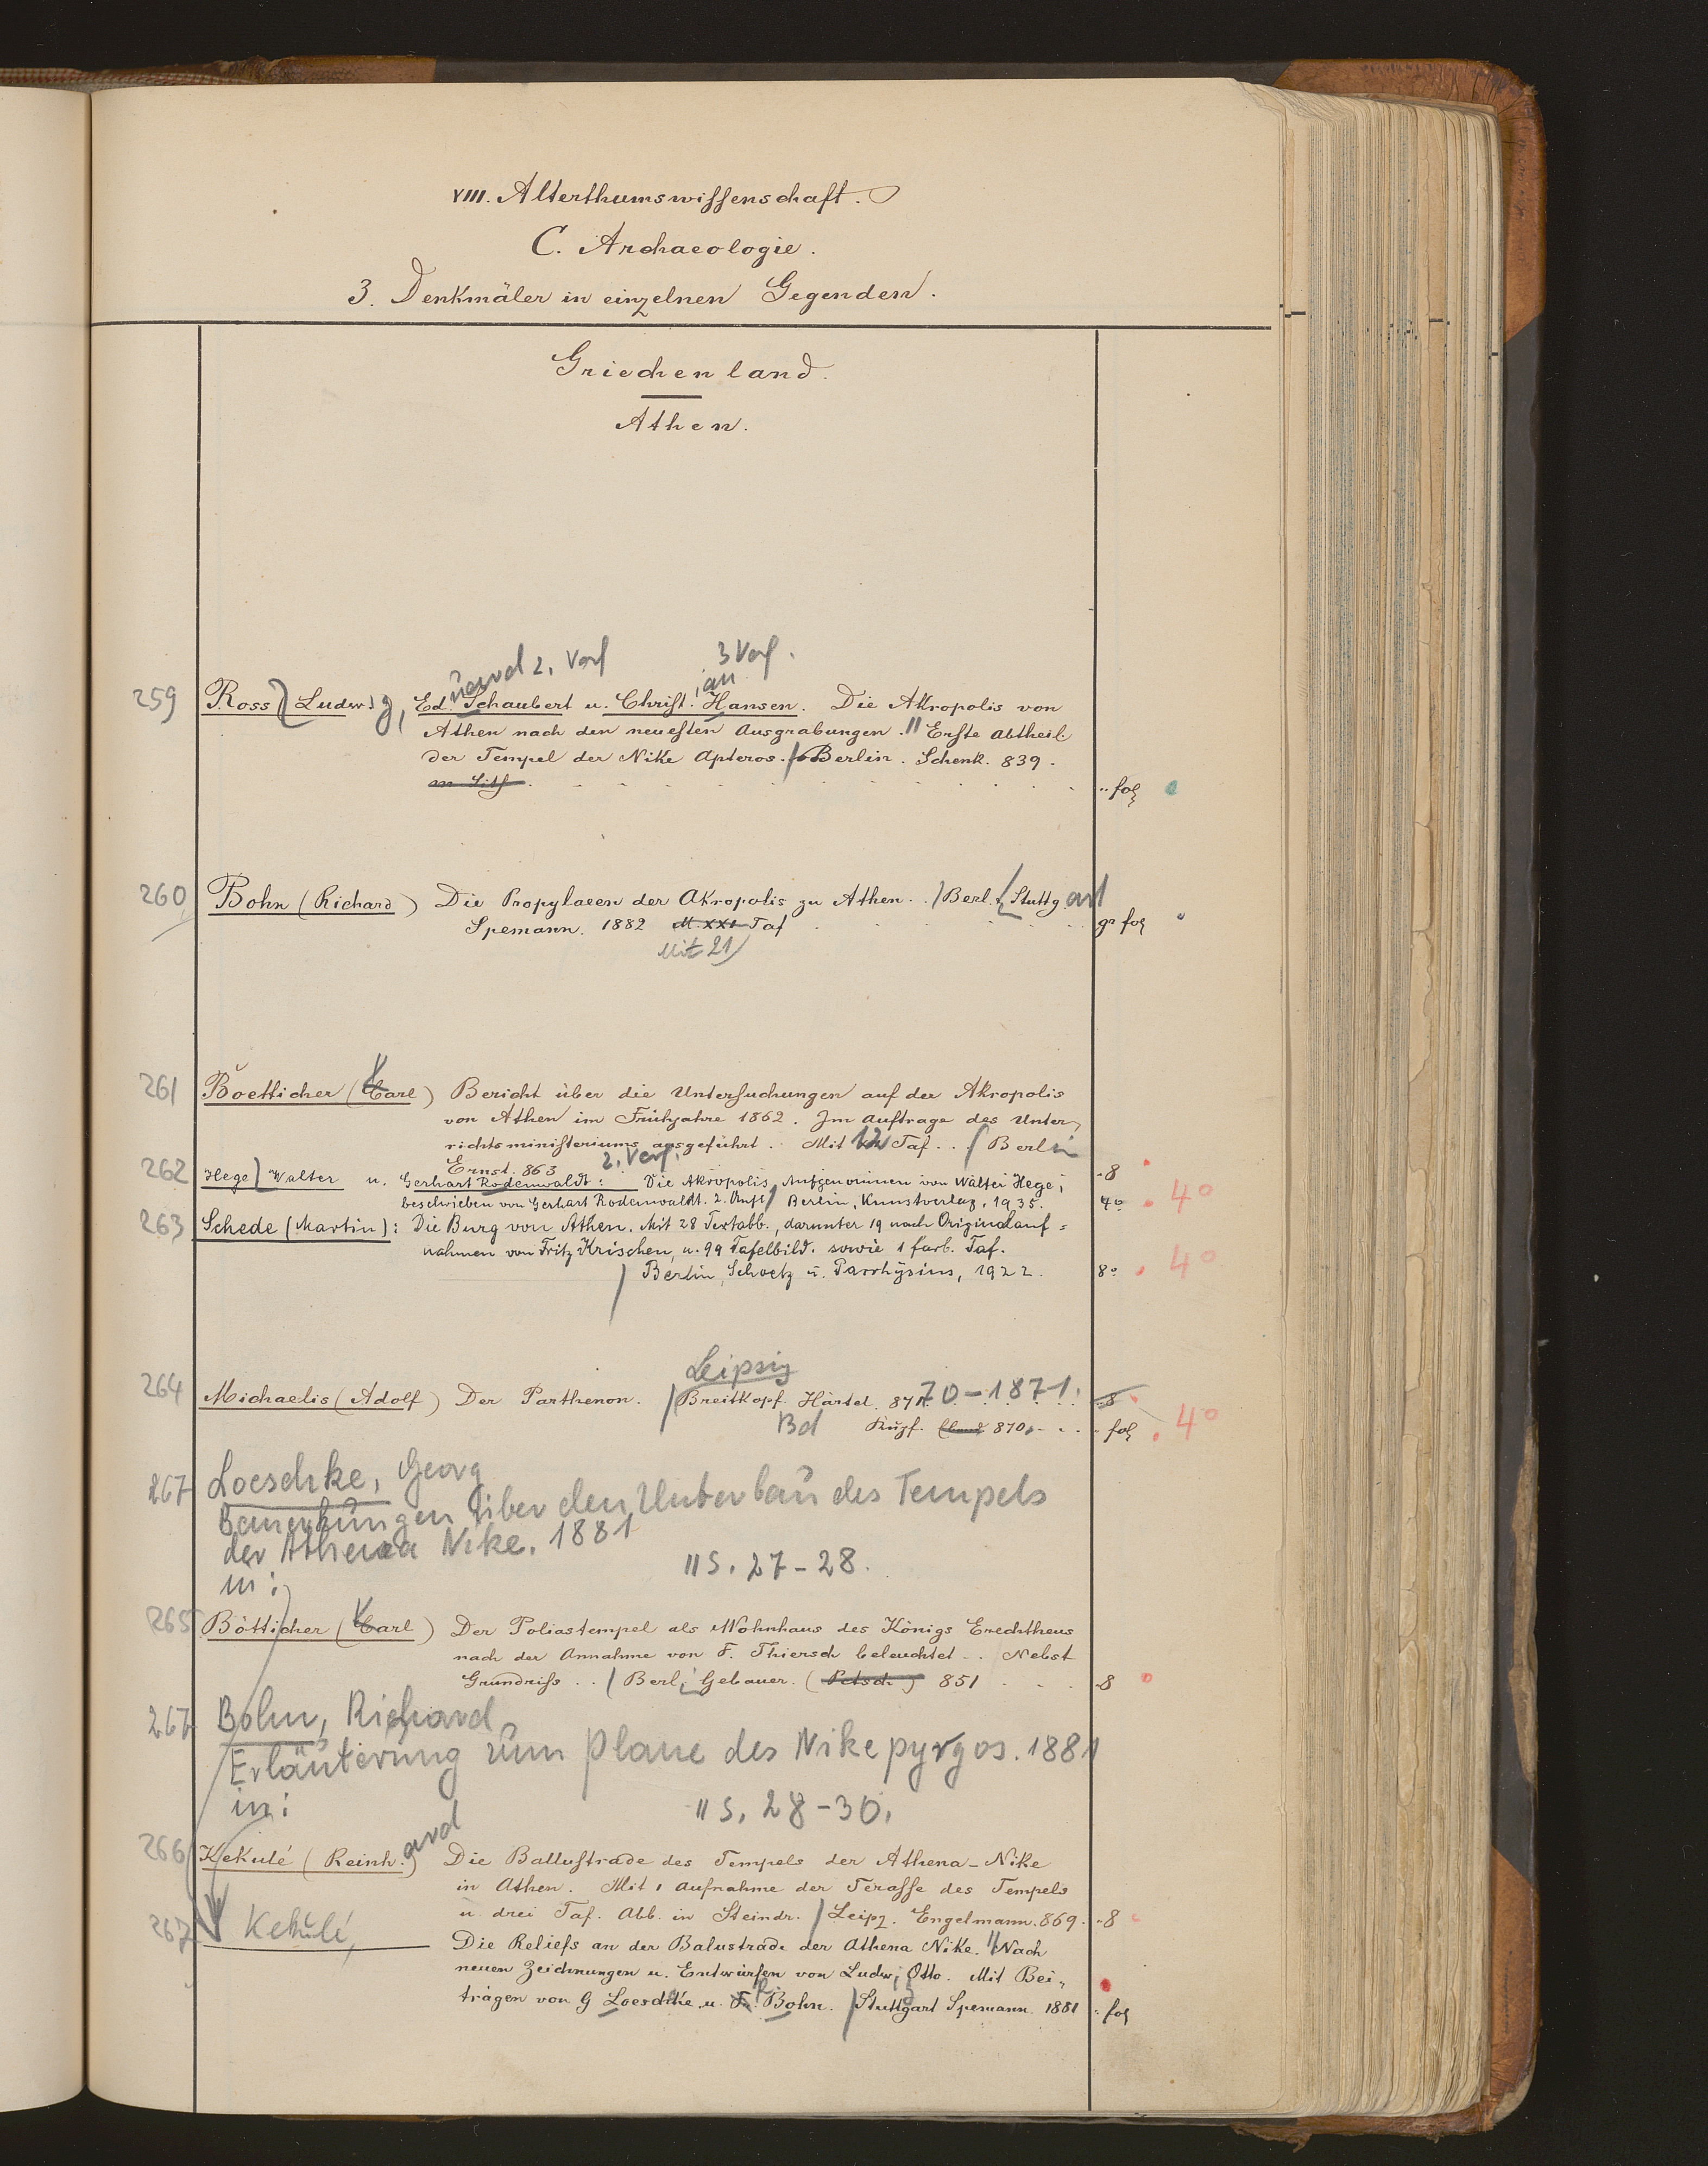 VIII. Alterthumswissenschaft.
C. Archaeologie.
3. Denkmäler in einzelnen Gegenden.
Griechenland.
Athen.
uard 2. Verf
3 Verf.
ian
259 Ross (Ludwig, Ed. Schaubert u. Christ. Hansen. Die Akropolis von
Athen nach den neuesten Ausgrabungen. Erste Abtheil
der Tempel der Nike Apteros. Berlin. Schenk. 839.
fol
260 Bohn (Richard) Die Propylaeen der Akropolis zu Athen. Berl. Stuttgart
Spemann. 1882 M. XXI Taf gr fol
Mit 21
261 Boetticher (Karl) Bericht über die Untersuchungen auf der Akropolis
von Athen im Frühjahre 1862. Im Auftrage des Unter-
richtsministeriums ausgeführt. Mit 12 Taf. Berlin
Ernst. 863 8
2. Verf.
262 Hege, Walter u. Gerhart Rodenwaldt: Die Akropolis, Aufgenommen von Walter Hege;
beschrieben von Gerhart Rodenwaldt. 2. Aufl. Berlin, Kunstverlag, 1935. 4° 4°
263 Schede (Martin): Die Burg von Athen. Mit 28 Textabb., darunter 19 nach Originalauf=
nahmen von Fritz Krischen, u. 99 Tafelbild. sowie 1 farb. Taf.
Berlin, Schoetz u. Parrhysius, 1922. 8° 4°
Leipzig
264 Michaelis (Adolf) Der Parthenon. Breitkopf. Härtel. 870-1871. 8
Bd Kupf. 870 fol 4°
267 Loeschke, Georg
Bemerkungen über den Unterbau des Tempels
der Athena Nike. 1881
in: S. 27-28.
265 Bötticher (Karl) Der Poliastempel als Wohnhaus des Königs Erechtheus
nach der Annahme von F. Thiersch beleuchtet. Nebst
Grundriss. Berl. Gebauer. (Petsch) 851 8
267 Bohn, Richard
Erläuterung zum Plane des Nikepyrgos. 1881
in: S. 28-30.
266 Kekulé (Reinhard) Die Ballustrade des Tempels der Athena-Nike
in Athen. Mit 1 Aufnahme der Terasse des Tempels
u drei Taf. Abb. in Steindr. Leipz. Engelmann. 869. 8
267 Kekulé, Die Reliefs an der Balustrade der Athena Nike. Nach
neuen Zeichnungen u. Entwürfen von Ludwig Otto. Mit Bei-
trägen von G Loeschke u. R. Bohn. Stuttgart Spemann. 1881 fol